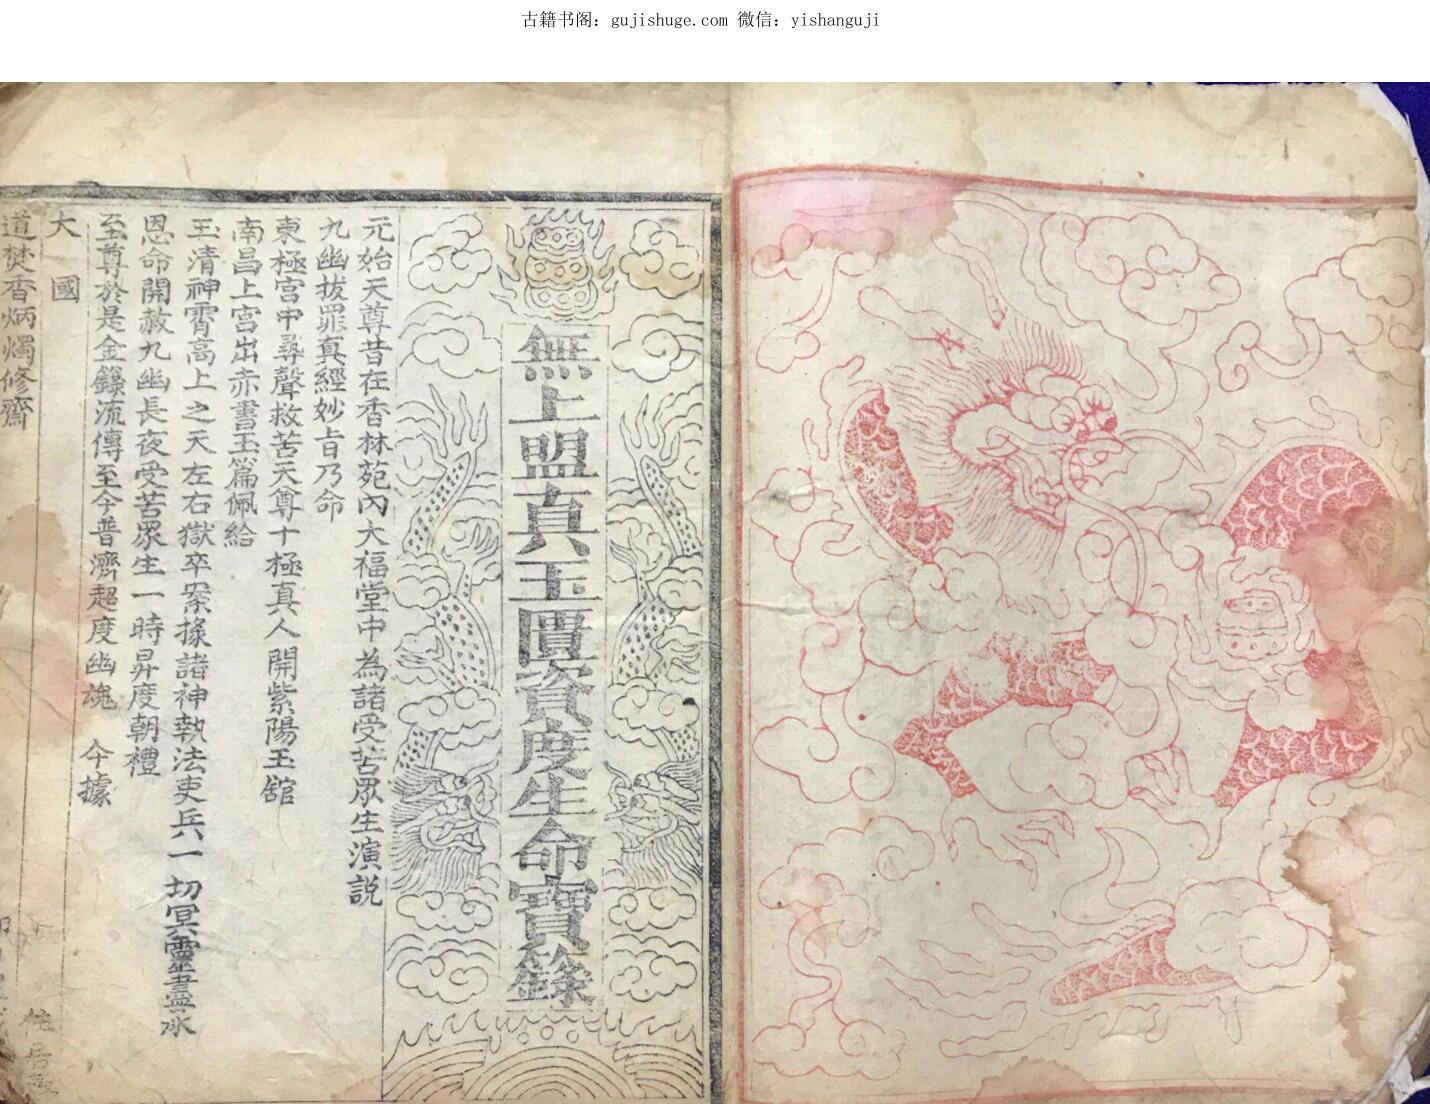 古籍书阁：gujishuge.com 微信：yishanguji
無上盟真玉匱資度生命寶籙
元始天尊昔在香林苑內大福堂中為諸受苦眾生演説
九幽拔罪真經妙旨乃命
東極宮中尋聲救苦天尊十極真人開紫陽玉舘
南昌上宮出赤書玉篇佩給
玉清神霄高上之天左右獄卒案掾諸神執法吏兵一切冥靈盡承
恩命開赦九幽長夜受苦眾生一時昇度朝禮
至尊於是金籙流傳至今普濟超度幽魂 今據
大 國
道焚香炳燭修齋